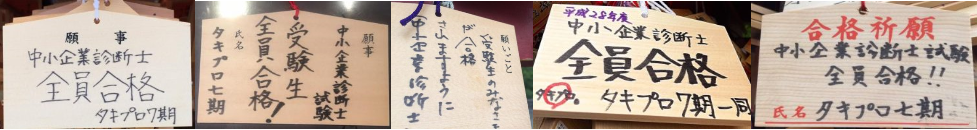 願事
中小企業診断士
全員合格
タキプロ7期
願事
中小企業診断士
試験
受験生
全員合格!
氏名
タキプロ七期
願いごと
受験生のみなさ
ば合格
されますように
中小企業診断士
平成28年度
中小企業診断士
全員合格
タキプロ。
タキプロ7期一同
合格祈願
中小企業診断士試験
全員合格!!
氏名 タキプロ七期